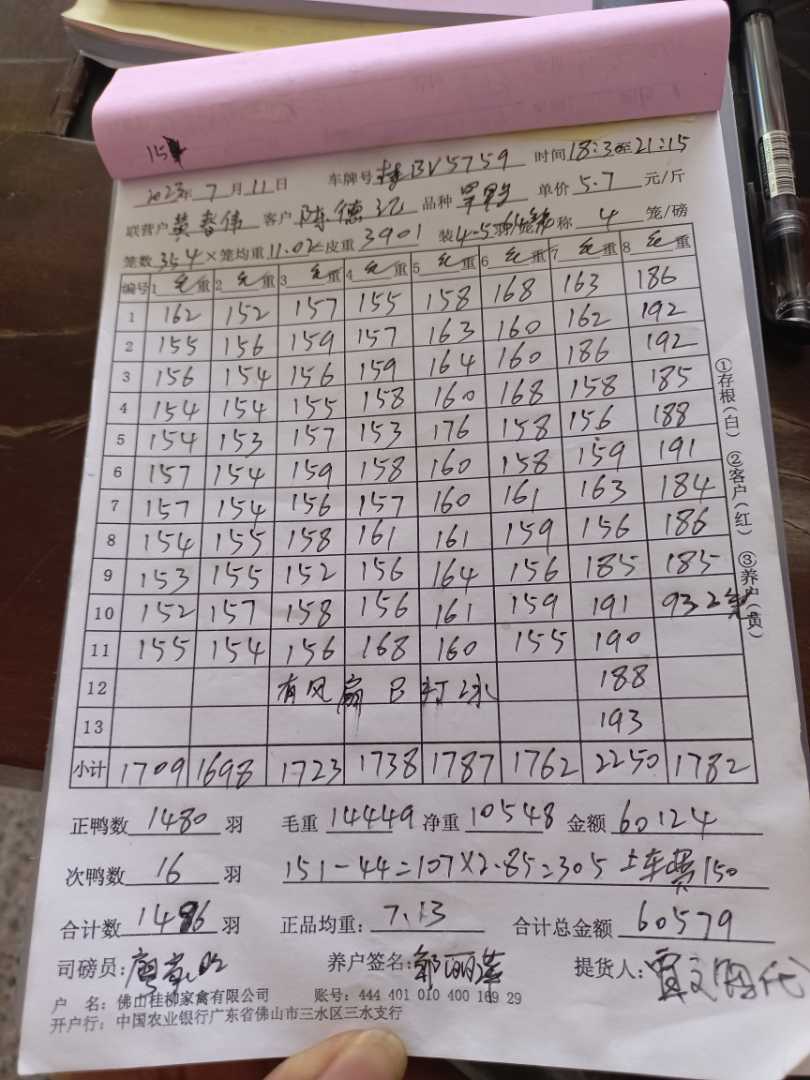 15
2023年7月11日 车牌号桂BV5759 时间18:30至21:15
联营户黄春伟 客户陈德 品种 单价5.7元/斤
笼数354×笼均重11.02=皮重3901 装4-5 称4笼/磅
编号 1毛重 2毛重 3毛重 4毛重 5毛重 6毛重 7毛重 8毛重
1 162 152 157 155 158 168 163 186
2 155 156 159 157 163 160 162 192
3 156 154 156 159 164 160 186 192
4 154 154 155 158 160 168 158 185
5 154 153 157 153 176 158 156 188
6 157 154 159 158 160 158 159 191
7 157 154 156 157 160 161 163 184
8 154 155 158 161 161 159 156 186
9 153 155 152 156 164 156 185 185
10 152 157 158 156 161 159 191 93 2笼
11 155 154 156 168 160 155 190
12 有风扇 打水 188
13 193
小计 1709 1698 1723 1738 1787 1762 2250 1782
正鸭数1480羽 毛重14449 净重10548 金额60124
次鸭数16羽 151-44=107×2.85=305 上车费150
合计数1496羽 正品均重:7.13 合计总金额60579
司磅员: 养户签名: 提货人:
户 名:佛山桂柳家禽有限公司 账号:444 401 010 400 169 29
开户行:中国农业银行广东省佛山市三水区三水支行
①存根(白) ②客户(红) ③养户(黄)